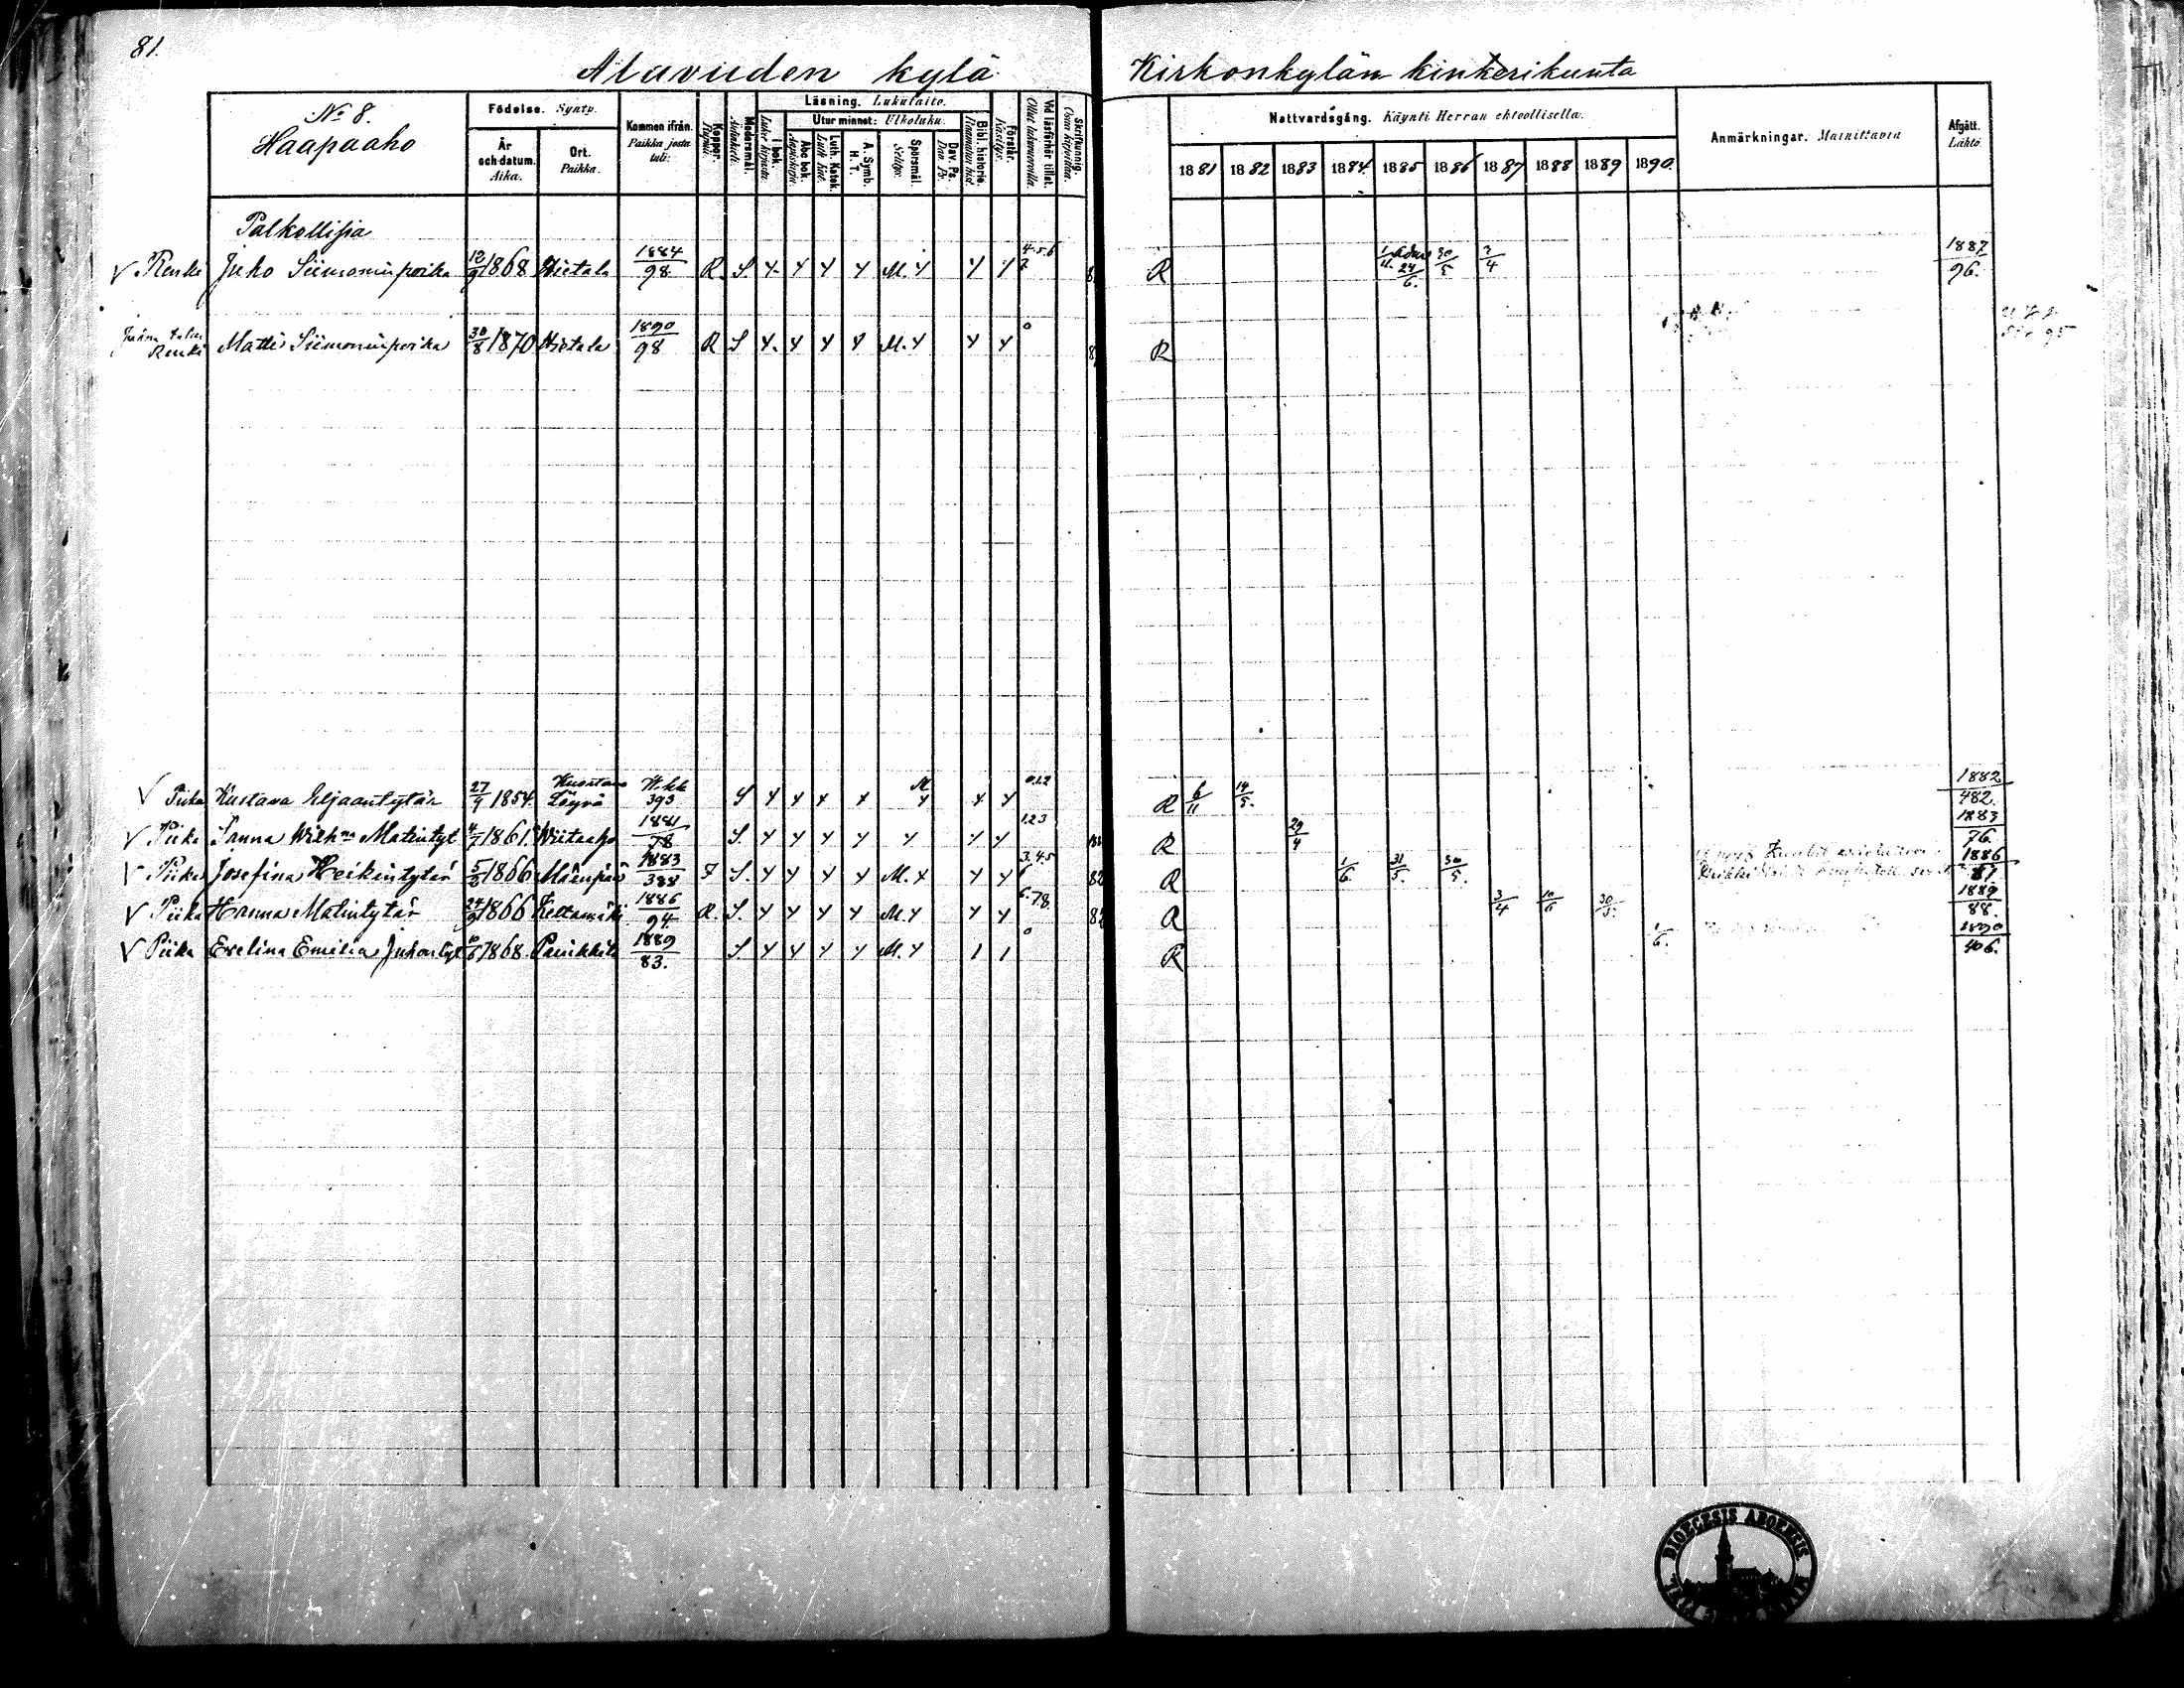 81.
Alavuden kylä
Kirkonkylän kinkerikunta
No 8.
Haapaaho
Födelse. Synty.
År och datum. Aika.
Ort. Paikka.
Kommen ifrån. Paikka josta tuli.
Koppor. Rupuli.
Modersmål. Äidinkieli.
Läsning. Lukutaito.
I bok. Luku kirjasta.
Utur minnet: Ulkoluku.
Abc bok. Aapiskirja.
Luth. Katek. Luth. Kat.
A. Symb. H. T.
Spörsmål. Selitys.
Dav. Ps. Dav. Ps.
Bibl. historie. Raamatun hist.
Förstår. Käsitys.
Vid läsförhör tillst. Ollut lukuvuorolla.
Skrifkunnig. Osaa kirjoittaa.
Nattvardsgång. Käynti Herran ehtoollisella.
1881 1882 1883 1884 1885 1886 1887 1888 1889 1890.
Anmärkningar. Mainittavia
Afgått. Lähtö.
Palkollisia
V Renki Juho Siimoninpoika 12/9 1868 Hietala 1884/98 R. S. Y. Y Y Y M. Y Y Y 4.5.6 7. R 24/6. 30/5 3/4 1887/96.
Renki Matti Siimoninpoika 30/8 1870 Hietala 1890/98 R S Y. Y Y Y M. Y Y Y 0 R
V Piika Kustava Eljaantytär 27/9 1854. Kuortane Löyvä W.kk 393 S Y Y Y Y M Y Y Y 0.1.2 R 6/11 14/5. 1882/482.
V Piika Sanna Wilhna Matintyt 4/7 1861. Wiitaaho 1881/78 S. Y Y Y Y Y Y Y 1.2.3 R 29/4 1883/76.
V Piika Josefina Heikintytär 5/8 1866 Mäenpää 1883/388 S. Y Y Y Y M. Y Y Y 3.4.5 6 R 1/6. 31/5. 30/5. 1886/81
V Piika Hanna Matintytär 24/9 1866 Keltamäki 1886/94. R. S. Y Y Y Y M. Y Y Y 6.7.8. R 3/4 10/6 30/5. 1889/88.
V Piika Evelina Emilia Juhontyt 1868 1889/83. S. Y Y Y Y M. Y 1 1 0 R 1/6. 1890/406.
DIOECESIS ABOENSIS